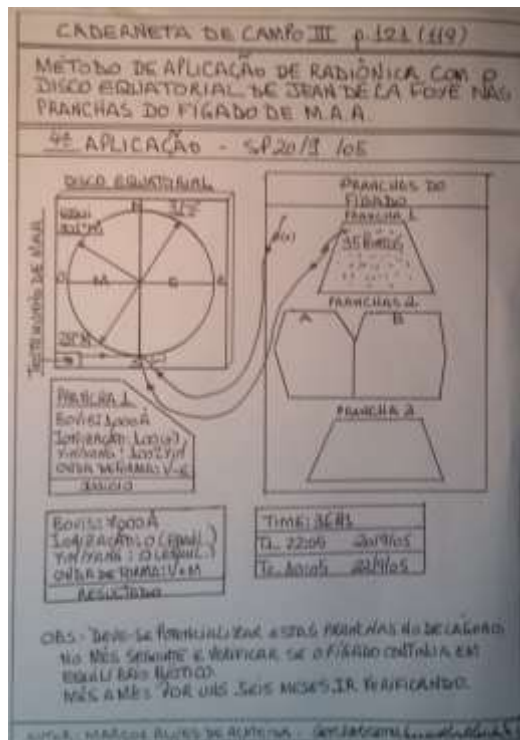 CADERNETA DE CAMPO III p.121 (119)
MÉTODO DE APLICAÇÃO DE RADIÔNICA COM O
DISCO EQUATORIAL DE JEAN DE LA FOYE NAS
PRANCHAS DO FÍGADO DE M.A.A.
4ª APLICAÇÃO - SP 20/9/05
DISCO EQUATORIAL
N
O
M
E
TESTEMUNHO DE MAA
PRANCHAS DO
FÍGADO
PRANCHA 1
PRANCHAS 2
A B
PRANCHA 3
PRANCHA 1
BOVIS: 1,000 Å
IONIZAÇÃO: 100 (+)
YIN/YANG: 100% YIN
ONDA DE FORMA: V-E
INÍCIO
BOVIS:
IONIZAÇÃO: 0 (EQUIL.)
YIN/YANG: 0 (EQUIL.)
ONDA DE FORMA: V+M
RESULTADO
TIME: 36HS
22:05 20/9/05
10:05
OBS: DEVE-SE POTENCIALIZAR ESTAS PRANCHAS NO DECÁGONO
NO MÊS SEGUINTE E VERIFICAR SE O FÍGADO CONTINUA EM
EQUILÍBRIO BIÓTICO.
MÊS A MÊS POR UNS SEIS MESES IR VERIFICANDO.
AUTOR: MARCOS ALVES DE ALMEIDA